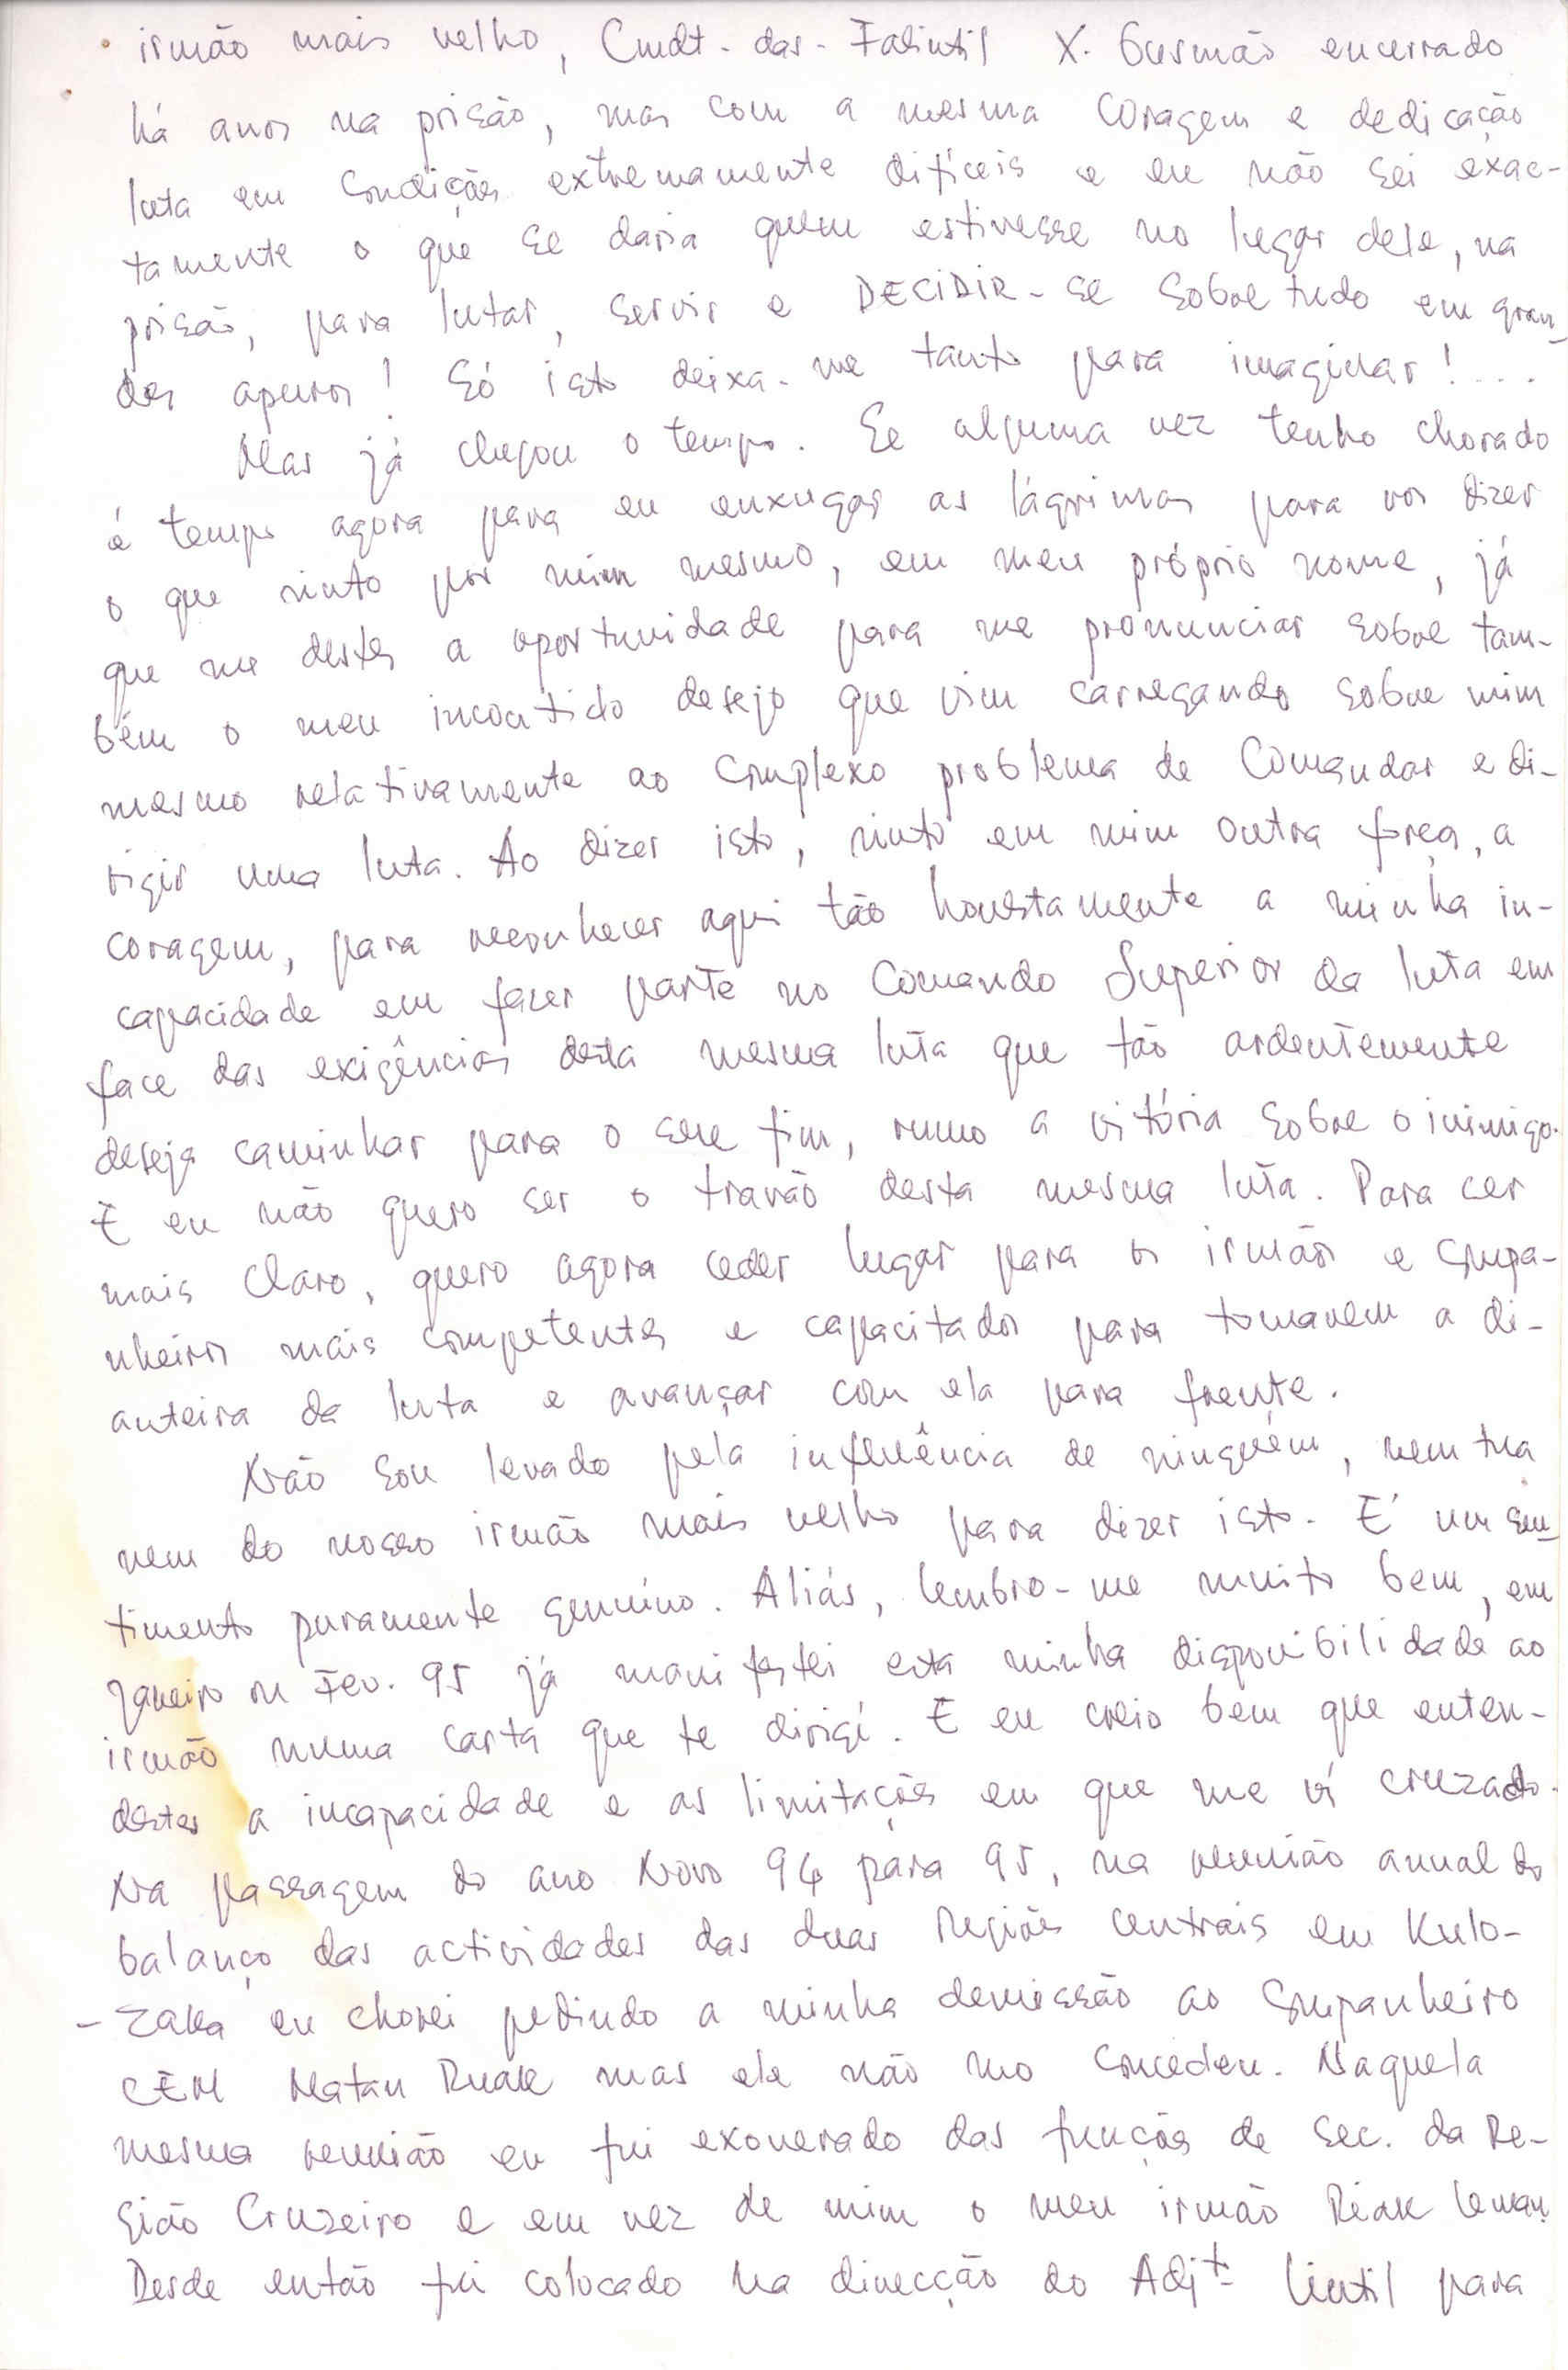 irmão mais velho, Cmdt-das-Falintil X. Gusmão encerrado
há anos na prisão, mas com a mesma coragem e dedicação
luta em condições extremamente difíceis e eu não sei exac-
tamente o que se daria quem estivesse no lugar dele, na
prisão, para lutar, servir e DECIDIR-se sobre tudo em gran-
des apuros! Só isto deixa-me tanto para imaginar!...
Mas já chegou o tempo. Se alguma vez tenho chorado
é tempo agora para eu enxugar as lágrimas para vos dizer
o que sinto por mim mesmo, em meu próprio nome, já
que me destes a oportunidade para me pronunciar sobre tam-
bém o meu incontido desejo que vim carregando sobre mim
mesmo relativamente ao complexo problema de Comandar e di-
rigir uma luta. Ao dizer isto, sinto em mim outra força, a
coragem, para reconhecer aqui tão honestamente a minha in-
capacidade em fazer parte no Comando Superior da luta em
face das exigências desta mesma luta que tão ardentemente
deseja caminhar para o seu fim, rumo a vitória sobre o inimigo.
E eu não quero ser o travão desta mesma luta. Para ser
mais claro, quero agora ceder lugar para os irmãos e compa-
nheiros mais competentes e capacitados para tomarem a di-
anteira da luta e avançar com ela para frente.
Não sou levado pela influência de ninguém, nem tua
nem do nosso irmão mais velho para dizer isto. É um sen-
timento puramente genuíno. Aliás, lembro-me muito bem, em
Janeiro ou Fev. 95 já manifestei esta minha disponibilidade ao
irmão numa carta que te dirigi. E eu creio bem que enten-
destes a incapacidade e as limitações em que me vi cruzado.
Na passagem do ano Novo 94 para 95, na reunião anual do
balanço das actividades das duas Regiões Centrais em Kulo-
-Zaka eu chorei pedindo a minha demissão ao Companheiro
CEM Matan Ruak mas ele não mo concedeu. Naquela
mesma reunião eu fui exonerado das funções de Sec. da Re-
gião Cruzeiro e em vez de mim o meu irmão Riak Leman.
Desde então fui colocado na direcção do Adjt. Lintil para